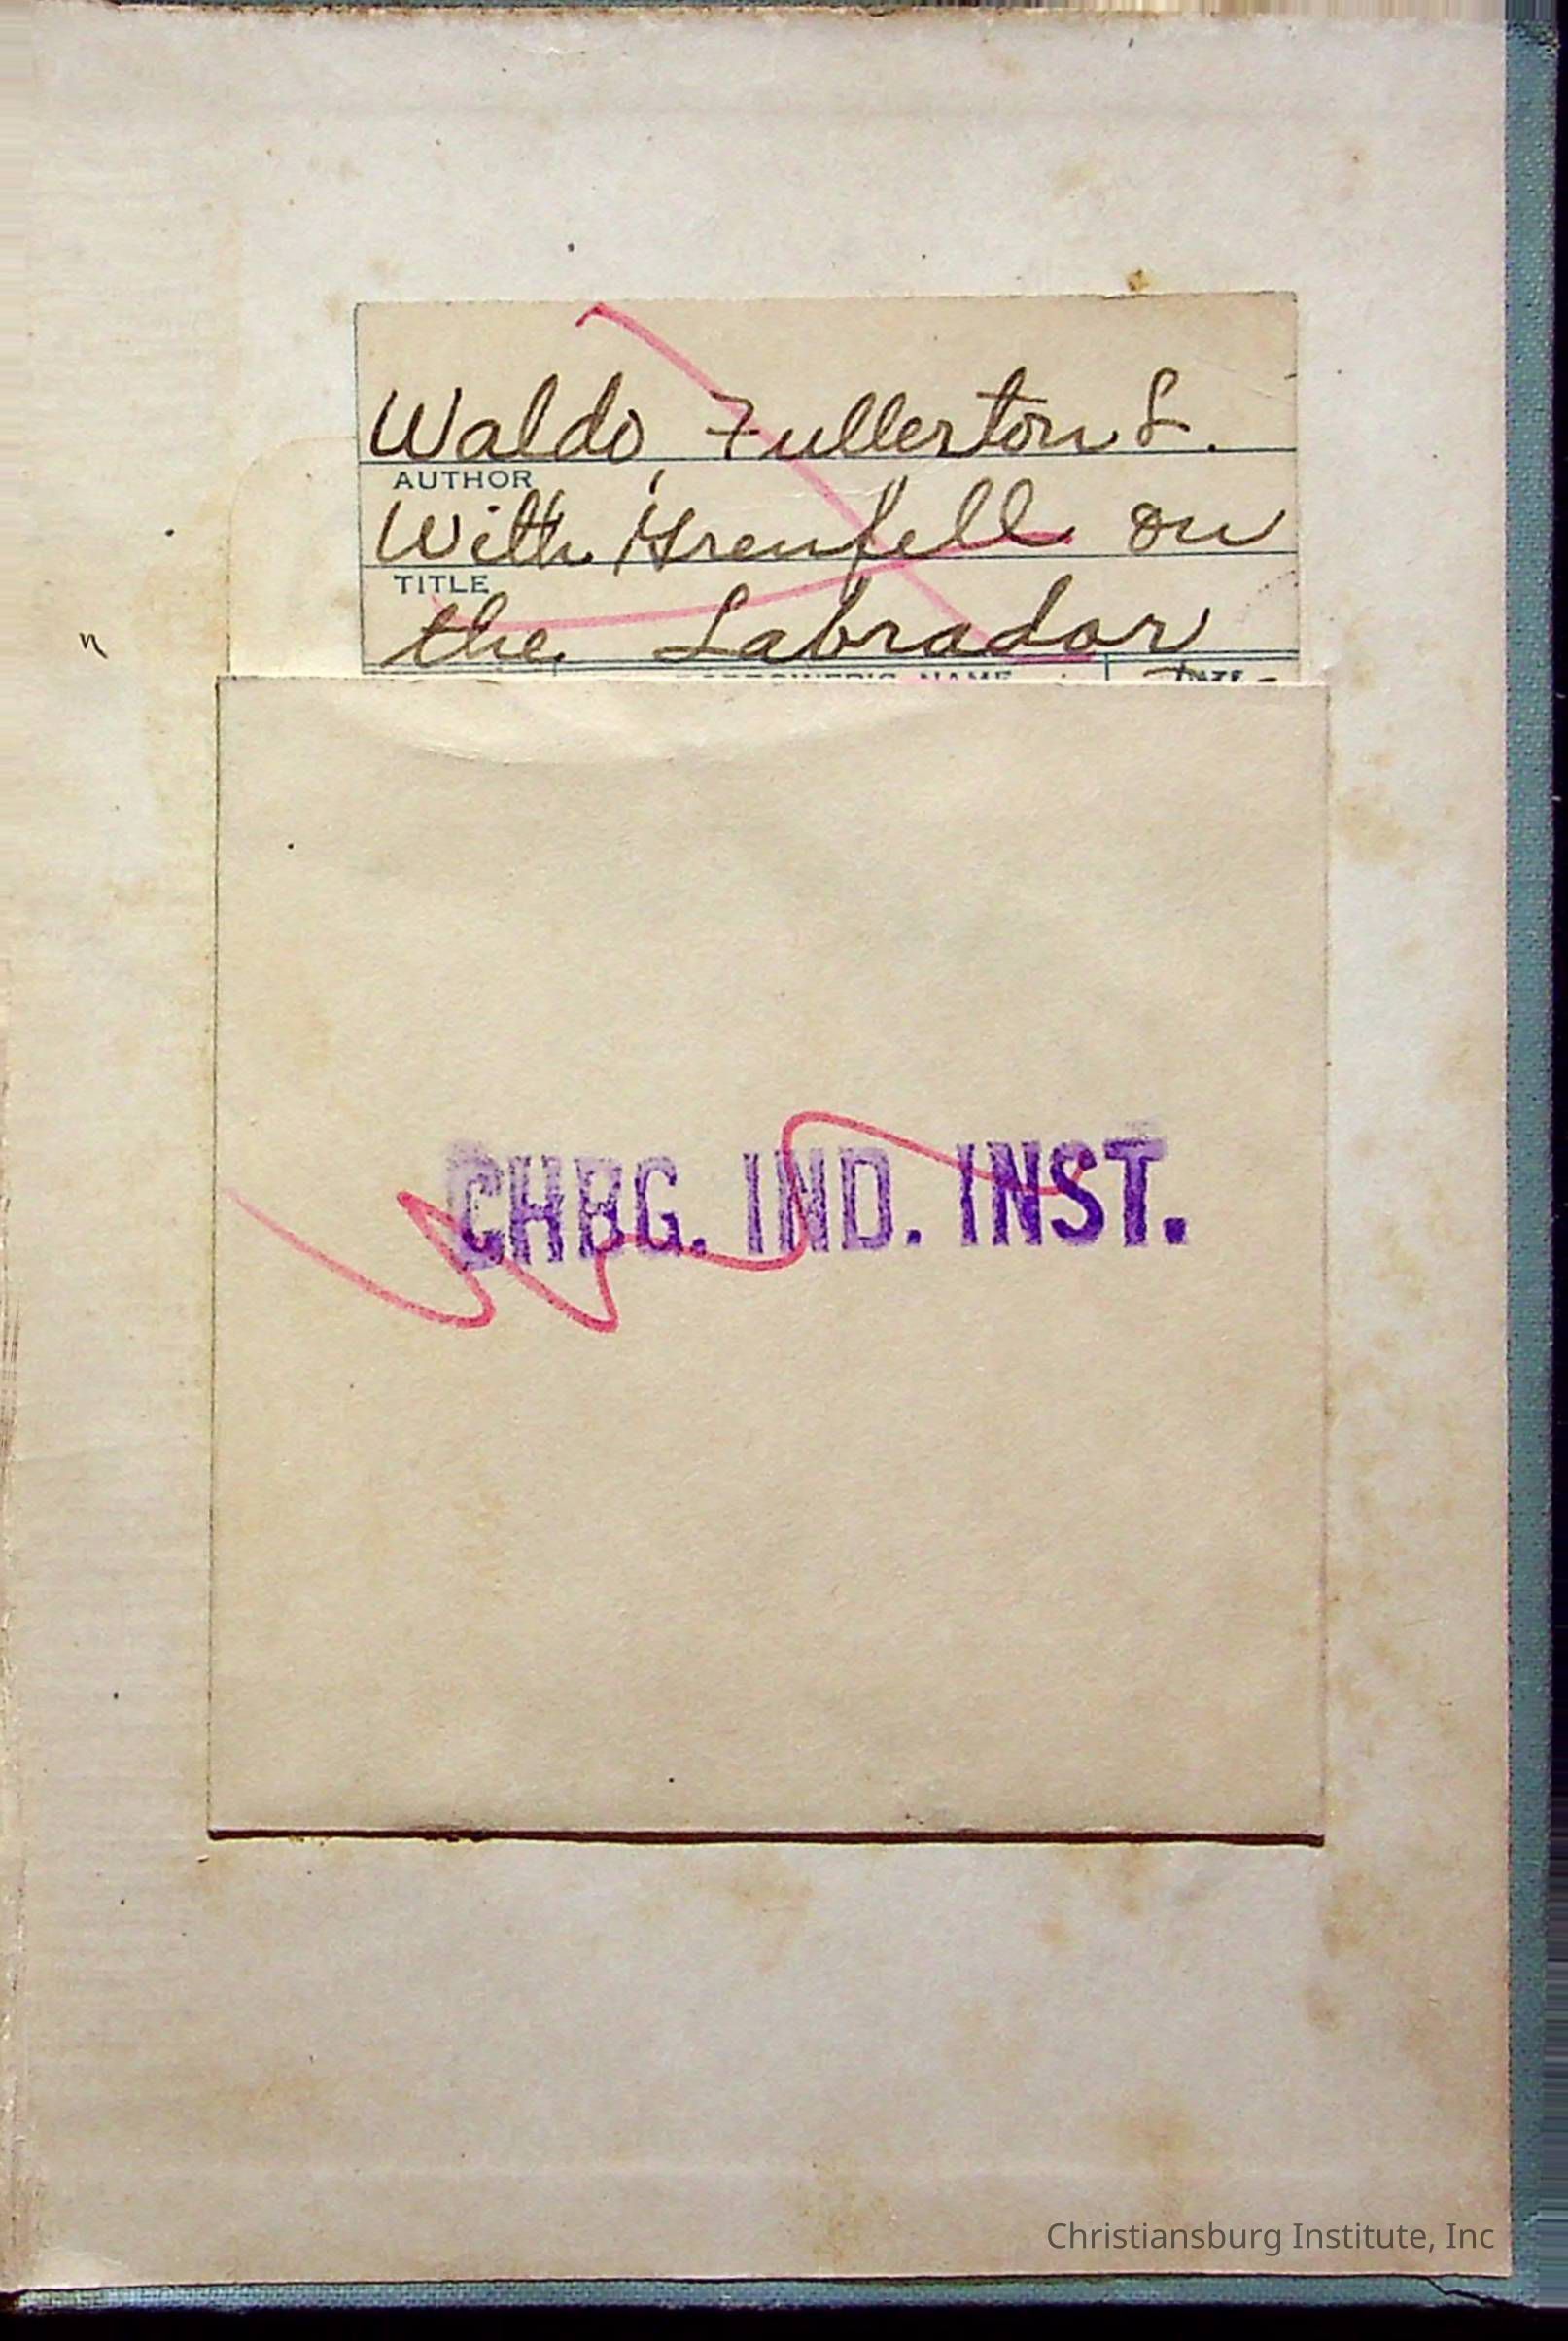 Waldo, Fullerton L.
AUTHOR
With Grenfell on
TITLE
the Labrador
BORROWER'S NAME
DATE
CHBG. IND. INST.
Christiansburg Institute, Inc